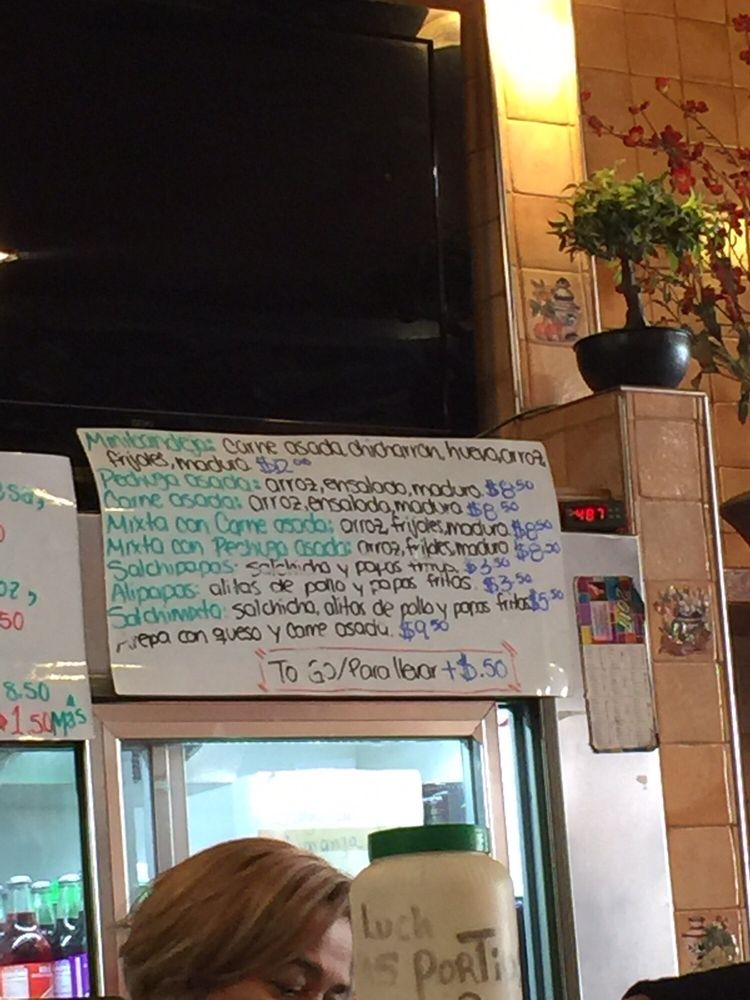 Minibandeja: carne asada, chicharron, huevo, arroz
frijoles, maduro $12.00
Pechuga asada: arroz, ensalada, maduro $8.50
Carne asada: arroz, ensalada, maduro $8.50
Mixta con Carne asada: arroz, frijoles, maduro $8.50
Mixta con Pechuga asada: arroz, frijoles, maduro $8.50
Salchipapas: salchicha y papas $3.50
Alipapas: alitas de pollo y papas fritas $3.50
Salchimixta: salchicha, alitas de pollo y papas fritas $5.50
Arepa con queso y carne asada. $9.50
To Go/Para llevar + $.50
487
8.50
1.50 Mas
50
Luch
PORTi